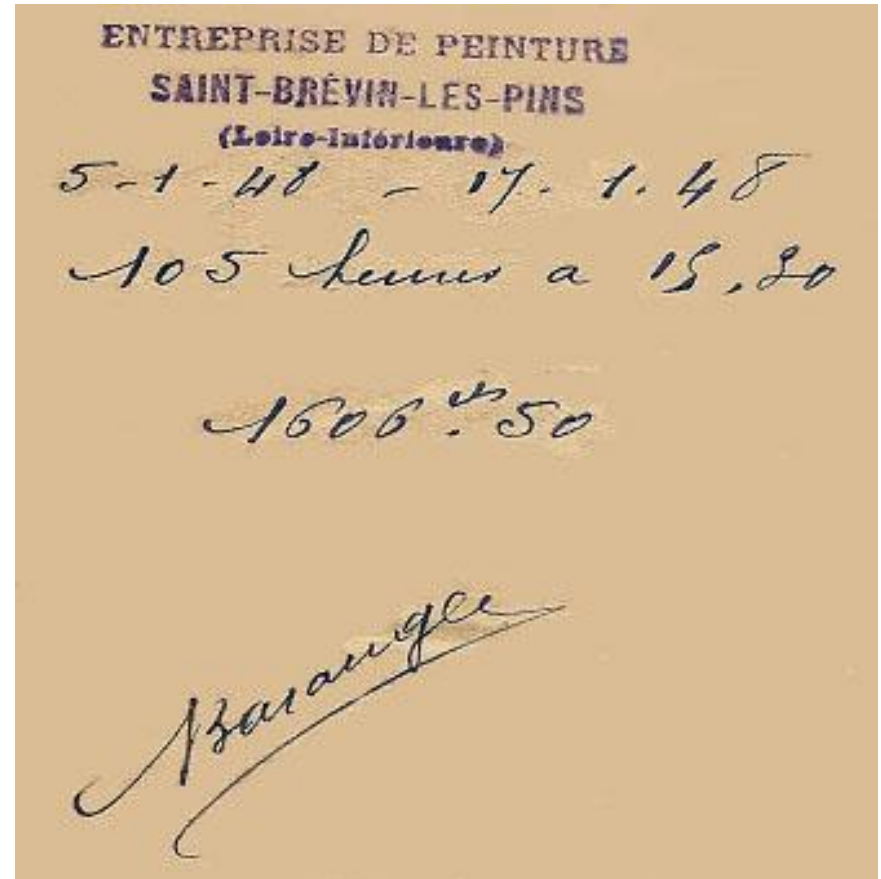 ENTREPRISE DE PEINTURE
SAINT-BRÉVIN-LES-PINS
(Loire-Inférieure)
5-1-48 - 17.1.48
105 heures a 15,30
1606 frs 50
Barangé